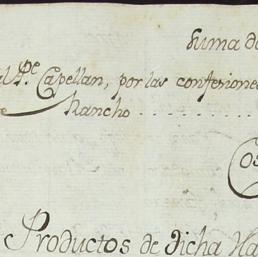 Suma de
al P.e Capellan, por las confesiones
Rancho . . . . . . . . . .
Productos de dicha Ha